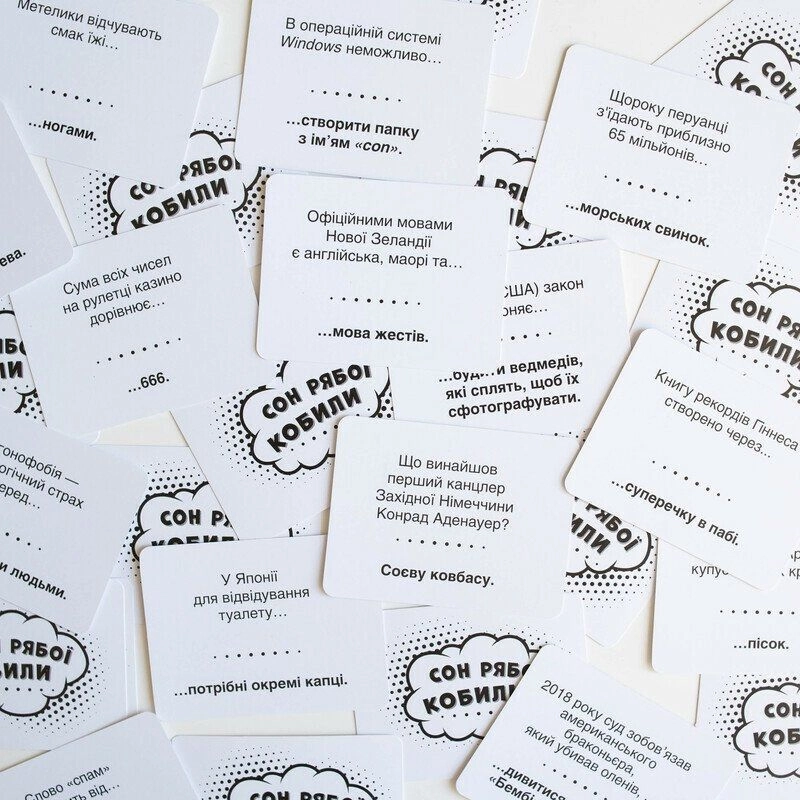 Метелики відчувають
смак їжі...
...ногами.
В операційній системі
Windows неможливо...
...створити папку
з ім'ям «con».
СОН
КОБИЛИ
Щороку перуанці
з'їдають приблизно
65 мільйонів...
...морських свинок.
СОН РЯБОЇ
КОБИЛИ
Сума всіх чисел
на рулетці казино
дорівнює...
...666.
Офіційними мовами
Нової Зеландії
є англійська, маорі та...
...мова жестів.
США) закон
...будити ведмедів,
які сплять, щоб їх
сфотографувати.
СОН РЯБОЇ
КОБИЛИ
СОН РЯБОЇ
КОБИЛИ
Книгу рекордів Гіннеса
створено через...
...суперечку в пабі.
страх
людьми.
СОН
Що винайшов
перший канцлер
Західної Німеччини
Конрад Аденауер?
Соєву ковбасу.
У Японії
для відвідування
туалету...
...потрібні окремі капці.
...пісок.
СОН РЯБОЇ
СОН
КОБИЛИ
2018 року суд зобов'язав
американського
браконьєра,
який убивав оленів,
...дивитися
Слово «спам»
від...
СОН РЯБОЇ